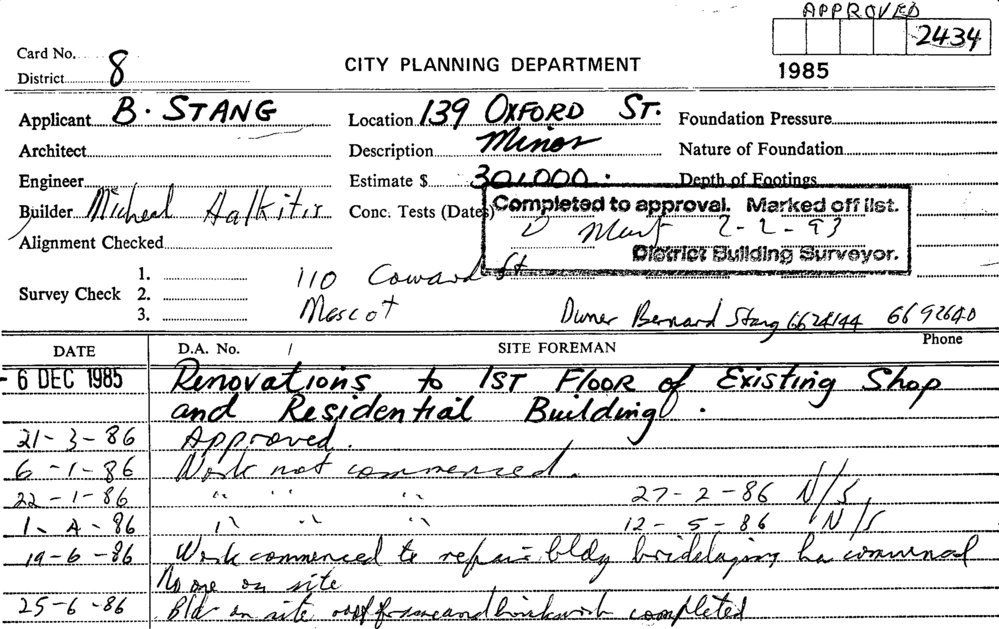 APPROVED
2434
1985
Card No. 8
District
CITY PLANNING DEPARTMENT
Applicant B. STANG Location 139 OXFORD ST. Foundation Pressure
Architect Description Minor Nature of Foundation
Engineer Estimate $ 301000. Depth of Footings
Builder Micheal Halkitis Conc. Tests (Dates)
Completed to approval. Marked off list.
2-2-93
District Building Surveyor.
Alignment Checked
Survey Check 1.
2.
3.
110 Coward St
Mascot
Owner Bernard Stang 6624144 6692640
Phone
DATE D.A. No. SITE FOREMAN
- 6 DEC 1985 Renovations to 1ST FLOOR of Existing Shop
and Residential Building.
21-3-86 Approved.
6-1-86 Work not commenced.
22-1-86 " " " 27-2-86 N/S
1-4-86 " " " 12-5-86 N/S
19-6-86 Work commenced to repair bldg bricklaying has commenced
No one on site
25-6-86 Bldr on site roof frame and brickwork completed